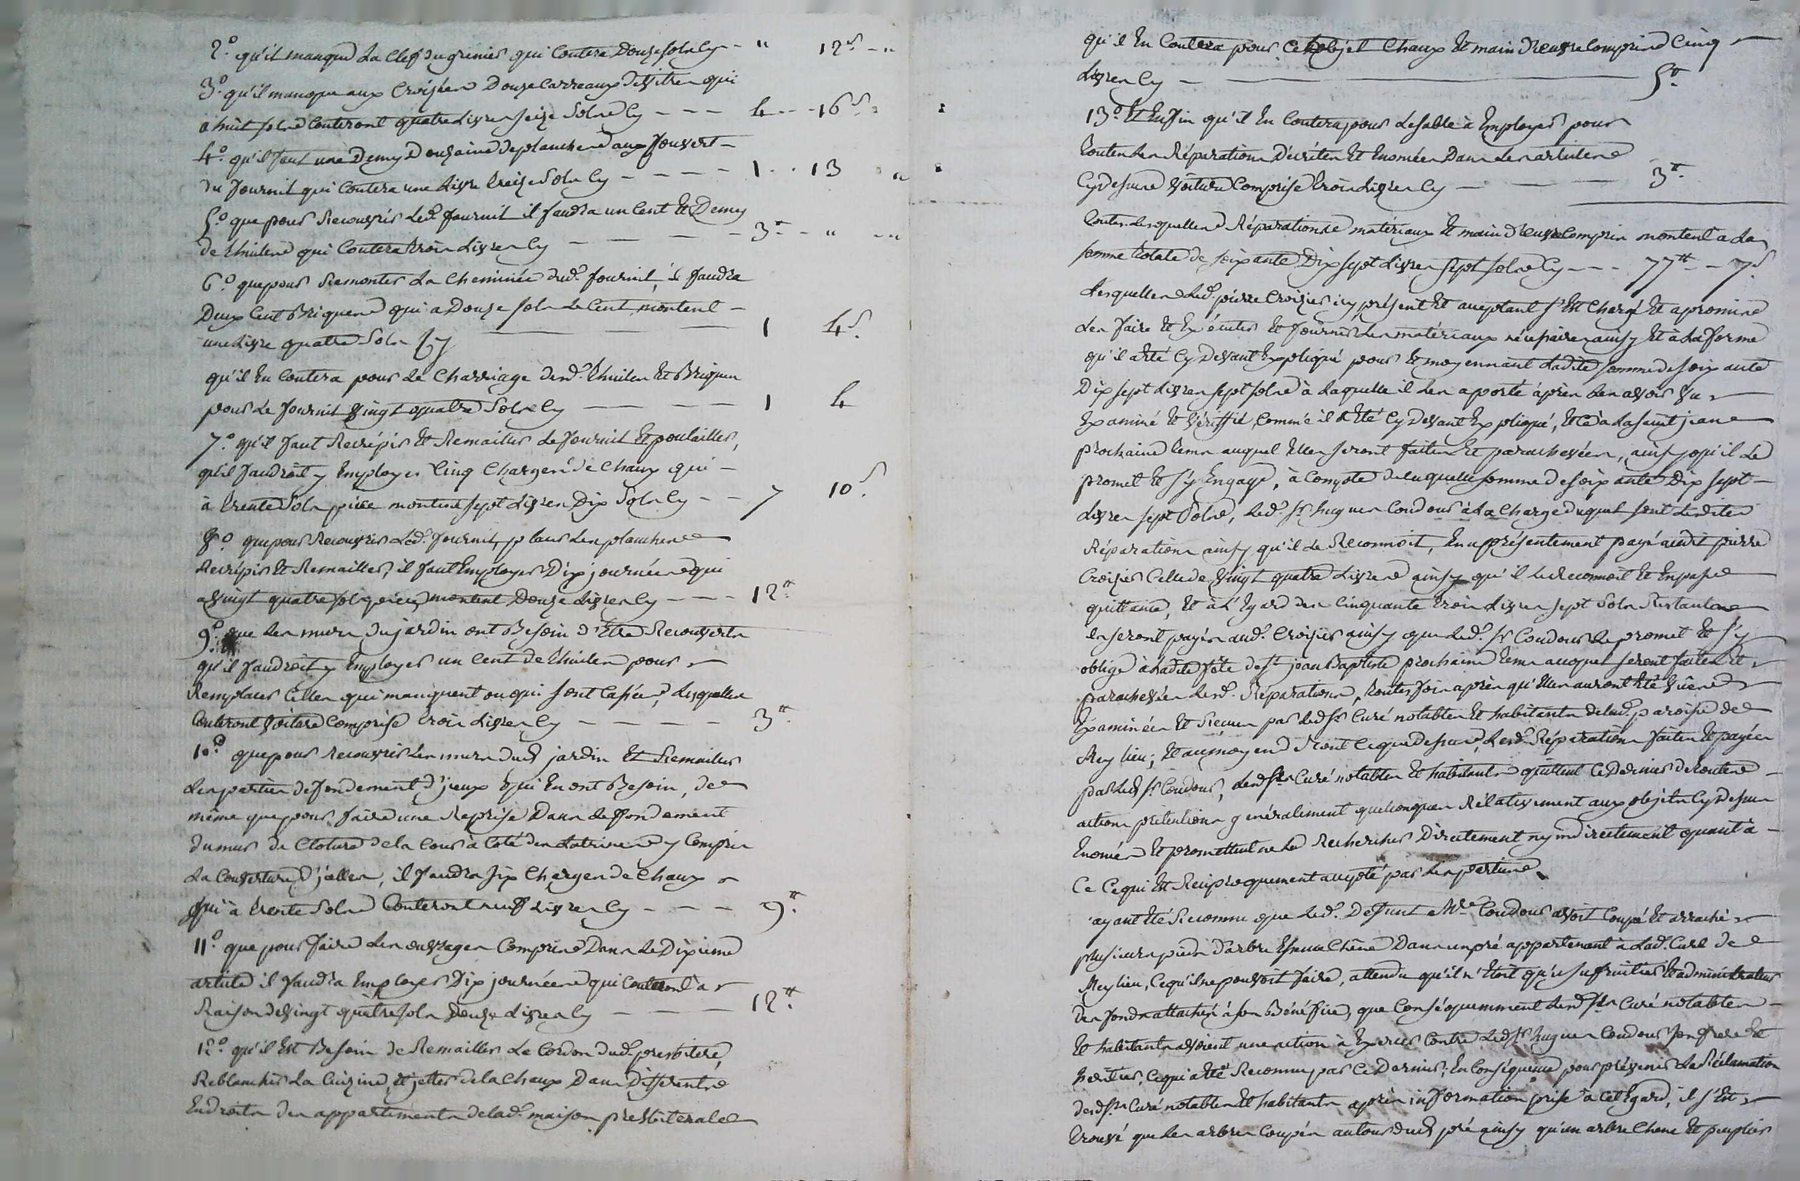 2.° qu'il manque La Clef du grenier qui Coutera Douze sols Cy - " 12.s - "
3.° qu'il manque aux Croisées Douze Carreaux de vitres qui
a huit sols Couteront quatre Livres seize Sols Cy - - - 4 - - 16.s
4.° qu'il faut une Demy Douzaine de planches aux Jouvert -
du fournil qui Coutera une Livre treize Sols Cy - - - - 1 - - 13 "
5.° que pour Recouvrir Led. fournil il faudra un Cent Et Demy
de thuiles qui Coutera trois Livres Cy - - - - 3.tt - " - "
6.° que pour Remonter La Cheminée dud. fournil, il faudra
Deux Cent Briques qui a Douze sols Le Cent montent -
une Livre quatre Sols Cy 1 4.s
qu'il En Coutera pour Le Charriage desd. thuiles Et Briques
pour Le fournil vingt quatre Sols Cy - - - 1 4
7.° qu'il faut Recrépir Et Remailler Le fournil Et poulailler,
qu'il faudroit y Employer Cinq Charges de Chaux qui -
à trente Sols piece montent sept Livres Dix Sols Cy - - 7 10.s
8.° que pour Recouvrir Led. fournil, placer Les planches
Recrépir Et Remailler, il faut Employer Dix journées qui
a vingt quatre sols piece, montent Douze Livres Cy - - - 12.tt
9.° que Les murs du jardin ont Besoin d'Etre Recouverts
qu'il faudroit y Employer un Cent de thuiles pour
Remplacer Celles qui manquent ou qui sont Cassées, Lesquelles
Couteront voiture Comprise trois Livres Cy - - - - 3.tt
10.° que pour recouvrir Les murs dud. jardin Et Remailler
Les parties de fondement d'jceux qui En ont Besoin, de
même que pour faire une Reprise Dans Le fondement
du mur de Cloture de la Cour à Coté des Latrines y Compris
La Couverture d'jcelles, il faudra six Charges de Chaux
qui à trente Sols Couteront neuf Livres Cy - - - 9.tt
11.° que pour faire Les ouvrages Compris Dans Le Dixieme
article il faudra Employer Dix journées qui Couteront a
Raison de vingt quatre sols Douze Livres Cy - - - 12.tt
12.° qu'il Est Besoin de Remailler Le Cordon dud. presbitere,
Reblanchir La Cuisine, Et jetter de la Chaux Dans Differents
Endroits des appartements de lad. maison presbiterale
qu'il En Coutera pour Cet objet Chaux Et main d'euvre Comprise Cinq
Livres Cy - 5.tt
13.° Et Enfin qu'il En Coutera pour Le sable à Employer pour
toutes Les Réparations Décrites Et Enomées Dans Les articles
Cy dessus voiture Comprise trois Livres Cy - - - 3.tt
toutes Lesquelles Réparations de matériaux Et main d'euvre Compris montent a La
somme totale de soixante Dix sept Livres sept sols Cy - - - 77.tt - 7.s
Lesquelles Led. pierre Croisier icy présent Et acceptant s'Est Chargé Et a promis
Les faire Et Exécuter Et fournir Les matériaux nécéssaires ainsy Et à La forme
qu'il a Eté Cy Devant Expliqué pour Et moyennant Ladite somme de soixante
Dix sept Livres sept sols à Laquelle il Les a porté aprés Les avoir vu
Examiné Et vériffié Comme il a Eté Cy Devant Expliqué, Et Ce à La saint jean
prochaine tems auquel Elles seront faites Et parachevées, ainsy qu'il Le
promet Et s'y Engage, à Compte de laquelle somme de soixante Dix sept -
Livres sept Sols, Led. Sr. hugues Coudour à La Charge duquel sont Lesdites
Réparations ainsy qu'il Le Reconnoit, En a présentement payé audit pierre
Croisier Celle de vingt quatre Livres ainsy qu'il Le Reconnoit Et En passe
quittance, Et à L'Egard des Cinquante trois Livres sept Sols Restantes
En seront payés aud. Croisier ainsy que Led. Sr. Coudour Le promet Et s'y
oblige à Ladite fête de St. jean Baptiste prochaine tems auquel seront faites Et
parachevées Lesd. Réparations, toutes fois après qu'Elles auront Eté vües
Examinées Et Reçues par Led. Sr. Curé notables Et habitants de lad. paroisse de
Meylieu; Et au moyen de tout Ce que dessus, Lesd. Réparations faites Et payées
par Led. Sr. Coudour, Lesd. Srs. Curé notables Et habitants quittent Ce Dernier de toutes
actions prétentions généralement quelconques Rélativement aux objets Cy dessus
Enomés Et promettent ne Le Rechercher Directement ny indirectement quant à -
Ce Ce qui Est Réciproquement accepté par Les parties.
ayant Eté Reconnu que Led. Defunt Mre. Coudour avoit Coupé Et arraché
plusieurs pieds d'arbre Essence Chêne Dans un pré appartenant à Lad. Cure de
Meylieu, Ce qu'il ne pouvoit faire, attendu qu'il n'Etoit qu'usuffruitier Et administrateur
Des fonds attachés à son Bénéffice, que Conséquemment Lesd. Srs. Curé notables
Et habitants avoient une action à Exercer Contre Led. Sr. hugues Coudour son frere Et
héritier, Ce qui a Eté Reconnu par Ce Dernier; En Conséquence pour prévenir La Réclamation
desd. Srs. Curé notables Et habitants après information prise à Cet Egard, il s'Est
trouvé que Les arbres Coupés autour dud. pré ainsy qu'un arbre Chene Et peuplier